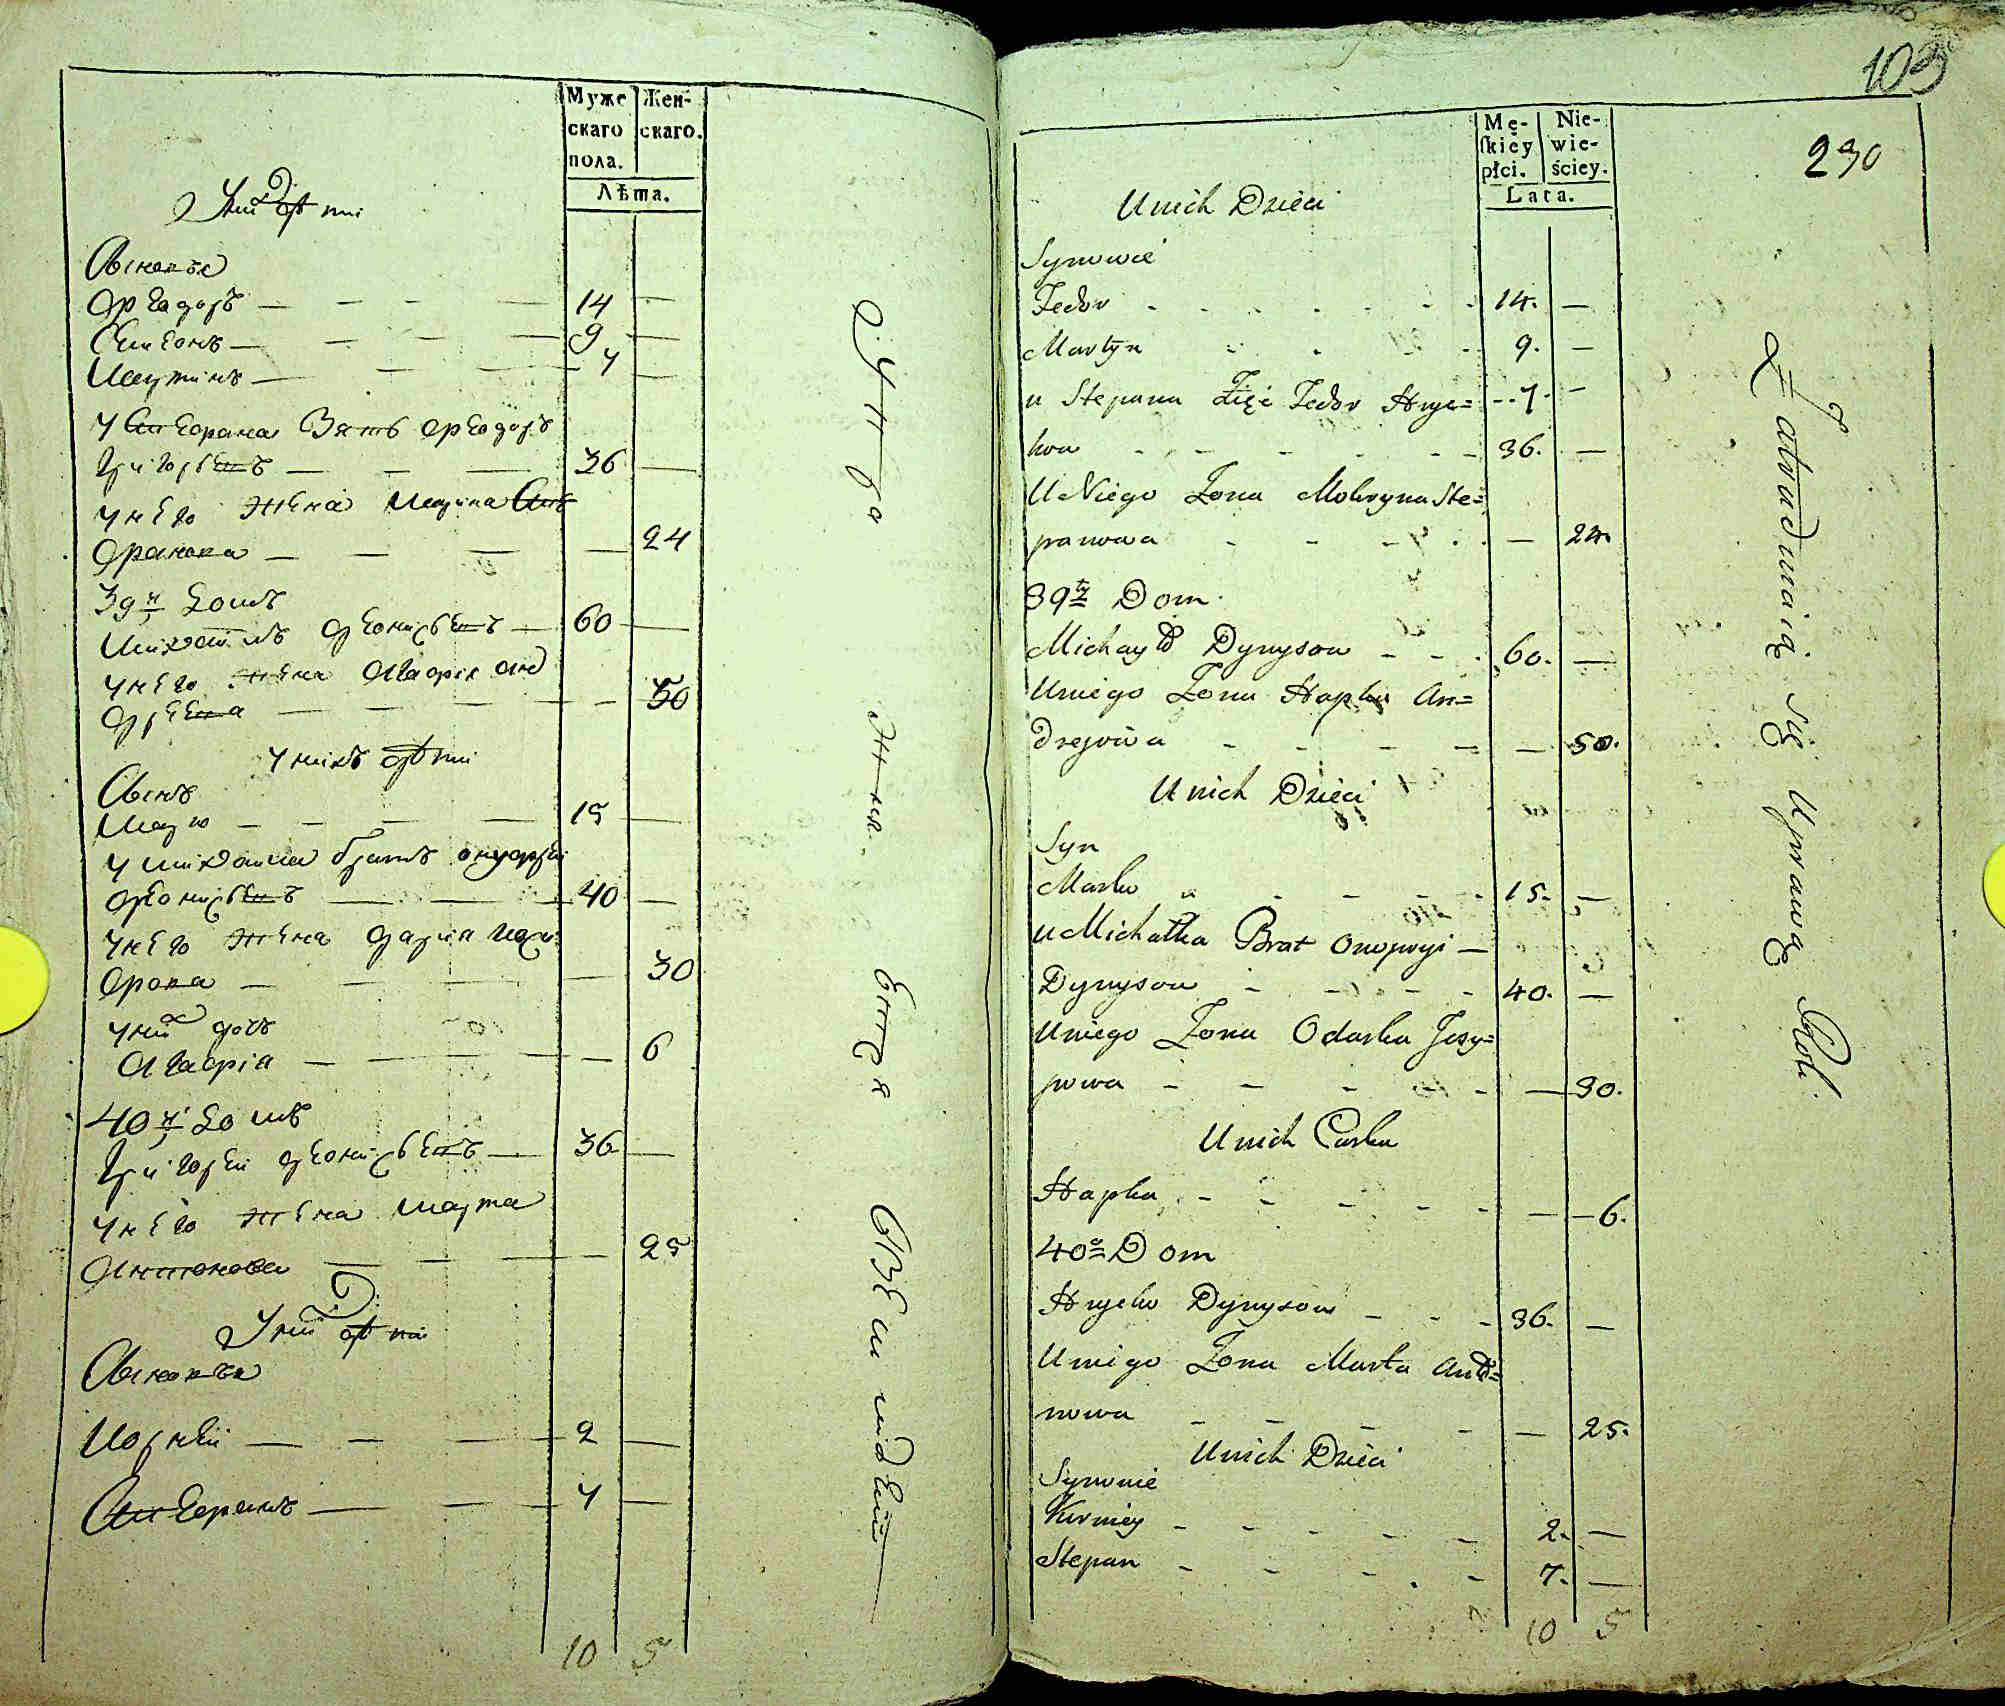 Муже
скаго
пола.
Жен-
скаго.
Лѣта.
У них дѣти
Сыновья
Феодоръ — — — — 14 —
Симеонъ — — — — 9 —
Мартинъ — — — — 7 —
У Стефана Зять Феодоръ
Григорьевъ — — — 36 —
У него жена Марина Сте
фанова — — — — 24
39й Домъ
Михаилъ Денисьевъ — 60 —
У него жена Агафія Ан
дреева — — — — — 50
У нихъ дѣти
Сынъ
Марко — — — — 15 —
У Михаила братъ Онуфрій
Денисьевъ — — — 40 —
У него жена Дарія Иоси
фова — — — — 30
У них дочь
Агафія — — — — 6
40й Домъ
Григорій Денисьевъ — 36 —
У него жена Марта
Антонова — — — — 25
У них дѣти
Сыновья
Корній — — — 2 —
Стефанъ — — — 7 —
10 5
жив ется землидел
103
230
Mę-
skiey
płci.
Nie-
wie-
ściey.
Lata.
U nich Dzieci
Synowie
Fedor - - - - - 14. —
Martyn - - - - 9. —
u Stepana Zięć Fedor Hryc= - - 7. -
kow - - - - - 36. —
U Niego Żona Mokryna Ste=
panowa - - - - — 24.
39ty Dom.
Michayło Dynysow - - - 60. —
U niego Żona Hapka An=
drejowa - - - - — 50.
U nich Dzieci
Syn
Marko - - - - - 15. —
u Michałka Brat Onopryi —
Dynysow - - - - - 40. —
U niego Żona Odarka Josy=
powa - - - - - — 30.
U nich Corka
Hapka - - - - - — 6.
40y Dom
Hryćko Dynysow - - - 36. —
U niego Żona Marta Anto=
nowa - - - - — 25.
U nich Dzieci
Synowie
Korniey - - - - - 2. —
Stepan - - - - - 7. —
10 5
Zatrudniaią się Uprawą Roli.